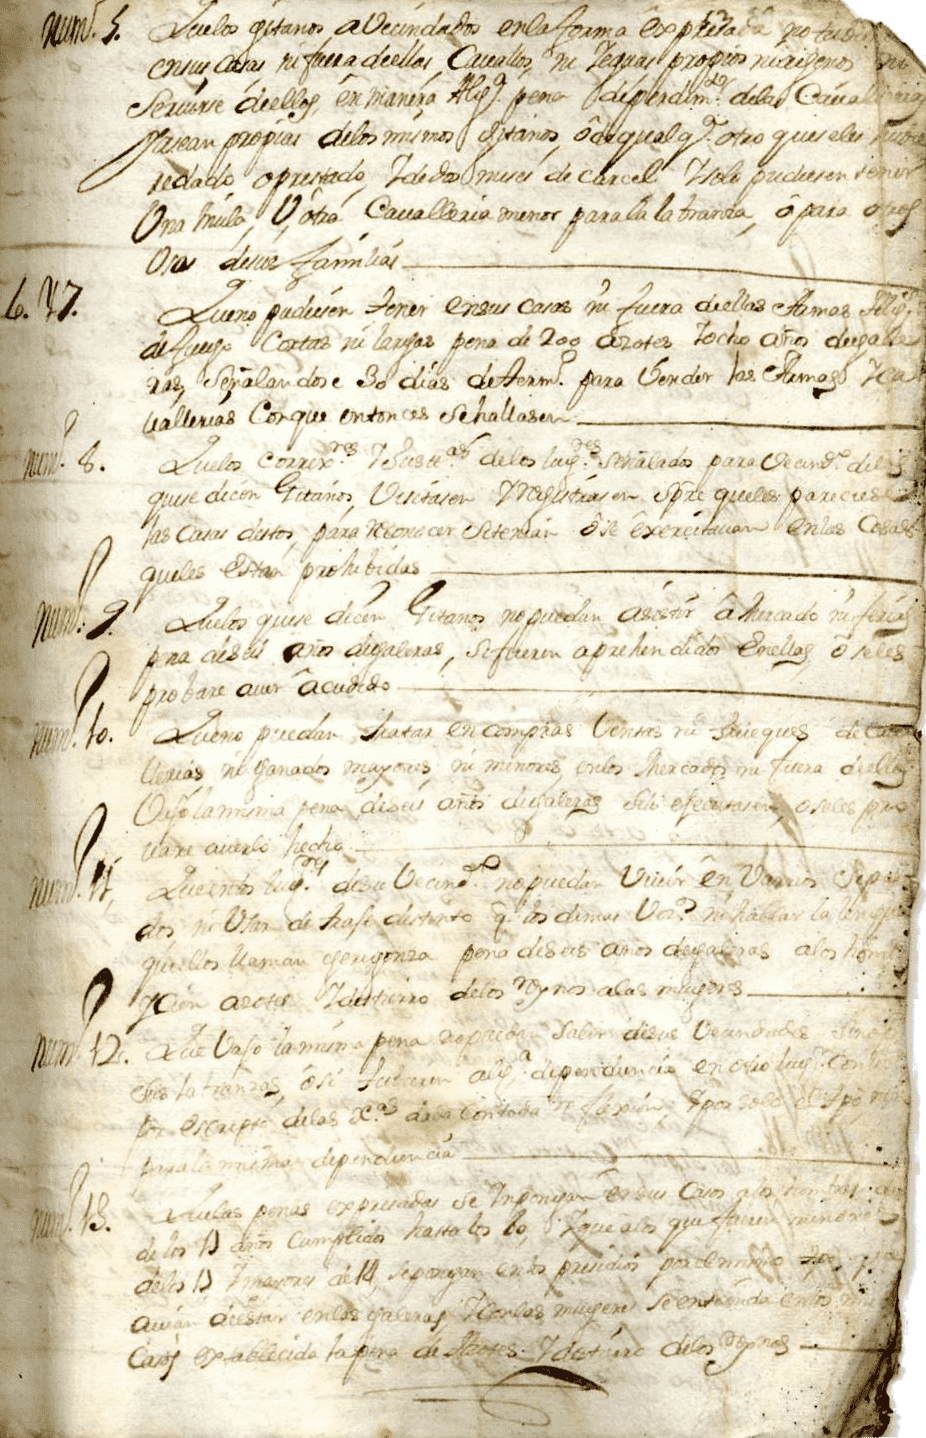 Num.º 5. Quelos gitanos avecindados enla forma expresada no pudiesen
ensus casas ni fuera deellas, Cavallos, ni Yeguas propios ni agenos ni
servirse deellos, en manera Alg.ª pena de perdim.to delas Cavallerias
ya sean propias delos mismos Gitanos, ô de qualq.ª otro queseles huvie
se dado o prestado, Y de dos meses de carcel Y solo pudiesen tener
Una mula, U, ôtra Cavalleria menor para la labranza, ô para otros
Usos desus familias
6. Y 7. Queno pudiesen tener ensus casas ni fuera deellas Armas Alg.s
defuego Cortas ni largas pena de 200 azotes Yocho años degale
ras, Señalandose 30 dias determ.º para Vender las Armas, Y Ca
vallerias Conque entonces sehallasen
Num.º 8. Quelos Correx.res Y Just.as delos lug.res señalados para Vecind.d delos
quese dicen Gitanos, Visitasen Y Registrasen Spre queles pareciese
las Casas destos, para reconocer sitenian ô se exercitavan enlas Cosas
queles estan prohibidas
Num.º 9. Quelos quese dicen Gitanos nopuedan asistir â Mercado ni ferias
pena deseis años degaleras, sifueren aprehendidos enellas, ô seles
probare aver âcudido
Num.º 10. Queno puedan tratar en compras Ventas ni trueques de Cava
llerias, ni ganados mayores ni menores enlos Mercados ni fuera deellos
Vajo lamisma pena deseis años degaleras silo efecutasen, o seles pro
vare averlo hecho
Num.º 11. Que enlos lug.res desu Vecind.d nopuedan Vivir en Varrios Separa
dos ni Usar de traje distinto q.e los demas Vez.os ni hablar la lengua
quellos llaman gerigonza pena deseis años degaleras alos hombres
y Cien azotes Y destierro delos Reynos alas mugeres
Num.º 12. Que Vajo lamisma pena nopuedan Salir desus Vecindades sino a
sus labranzas, ô si tubieren alg.ª dependencia en otro lug.r Con lic.ª
por escripto delas Just.as para la misma dependencia
Num.º 13. Quelas penas expresadas se Ympongan ensus Casos alos hombres
delos 17 años Cumplidos hasta los 60, Y que alos que fueren menores
delos 17 Y mayores de 14 sepongan enlos presidios por elmismo tpo q.e
avian deestar enlas galeras, Y Conlas mugeres seentienda enlos mis
Casos establecida lapena de Azotes Y destierro delos Reynos